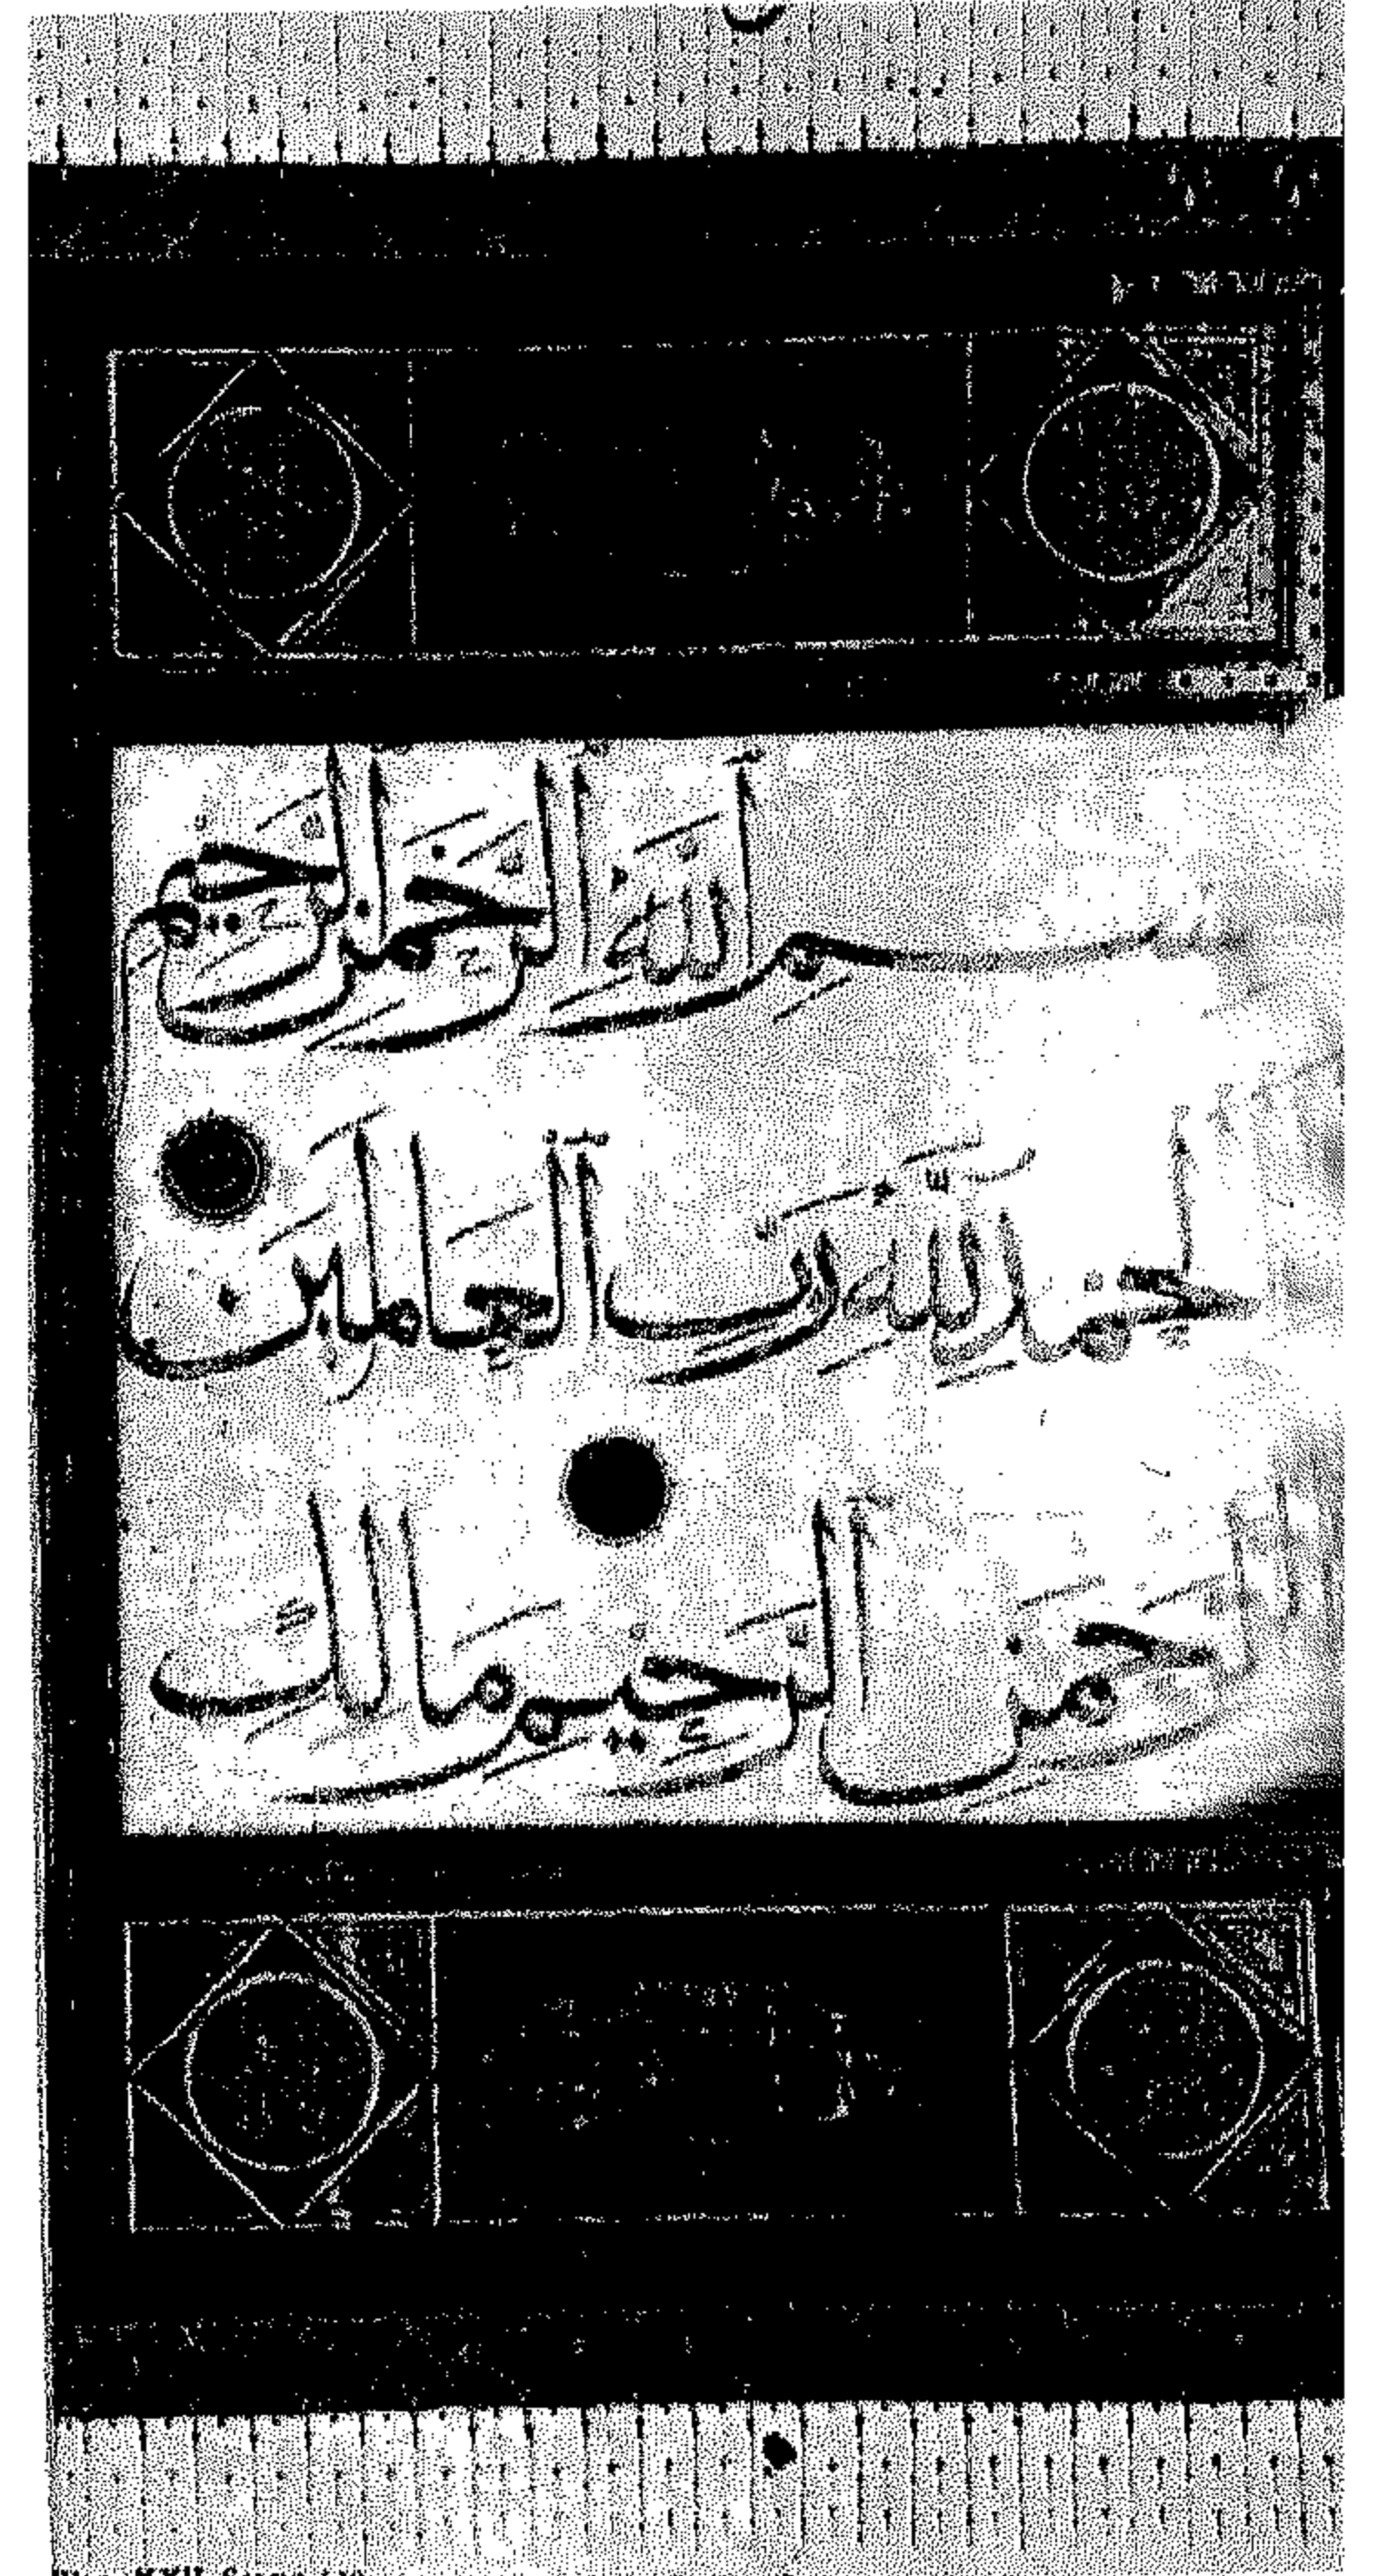 بسم الله الرحمن الرحيم
الحمد لله رب العالمين
الرحمن الرحيم مالك